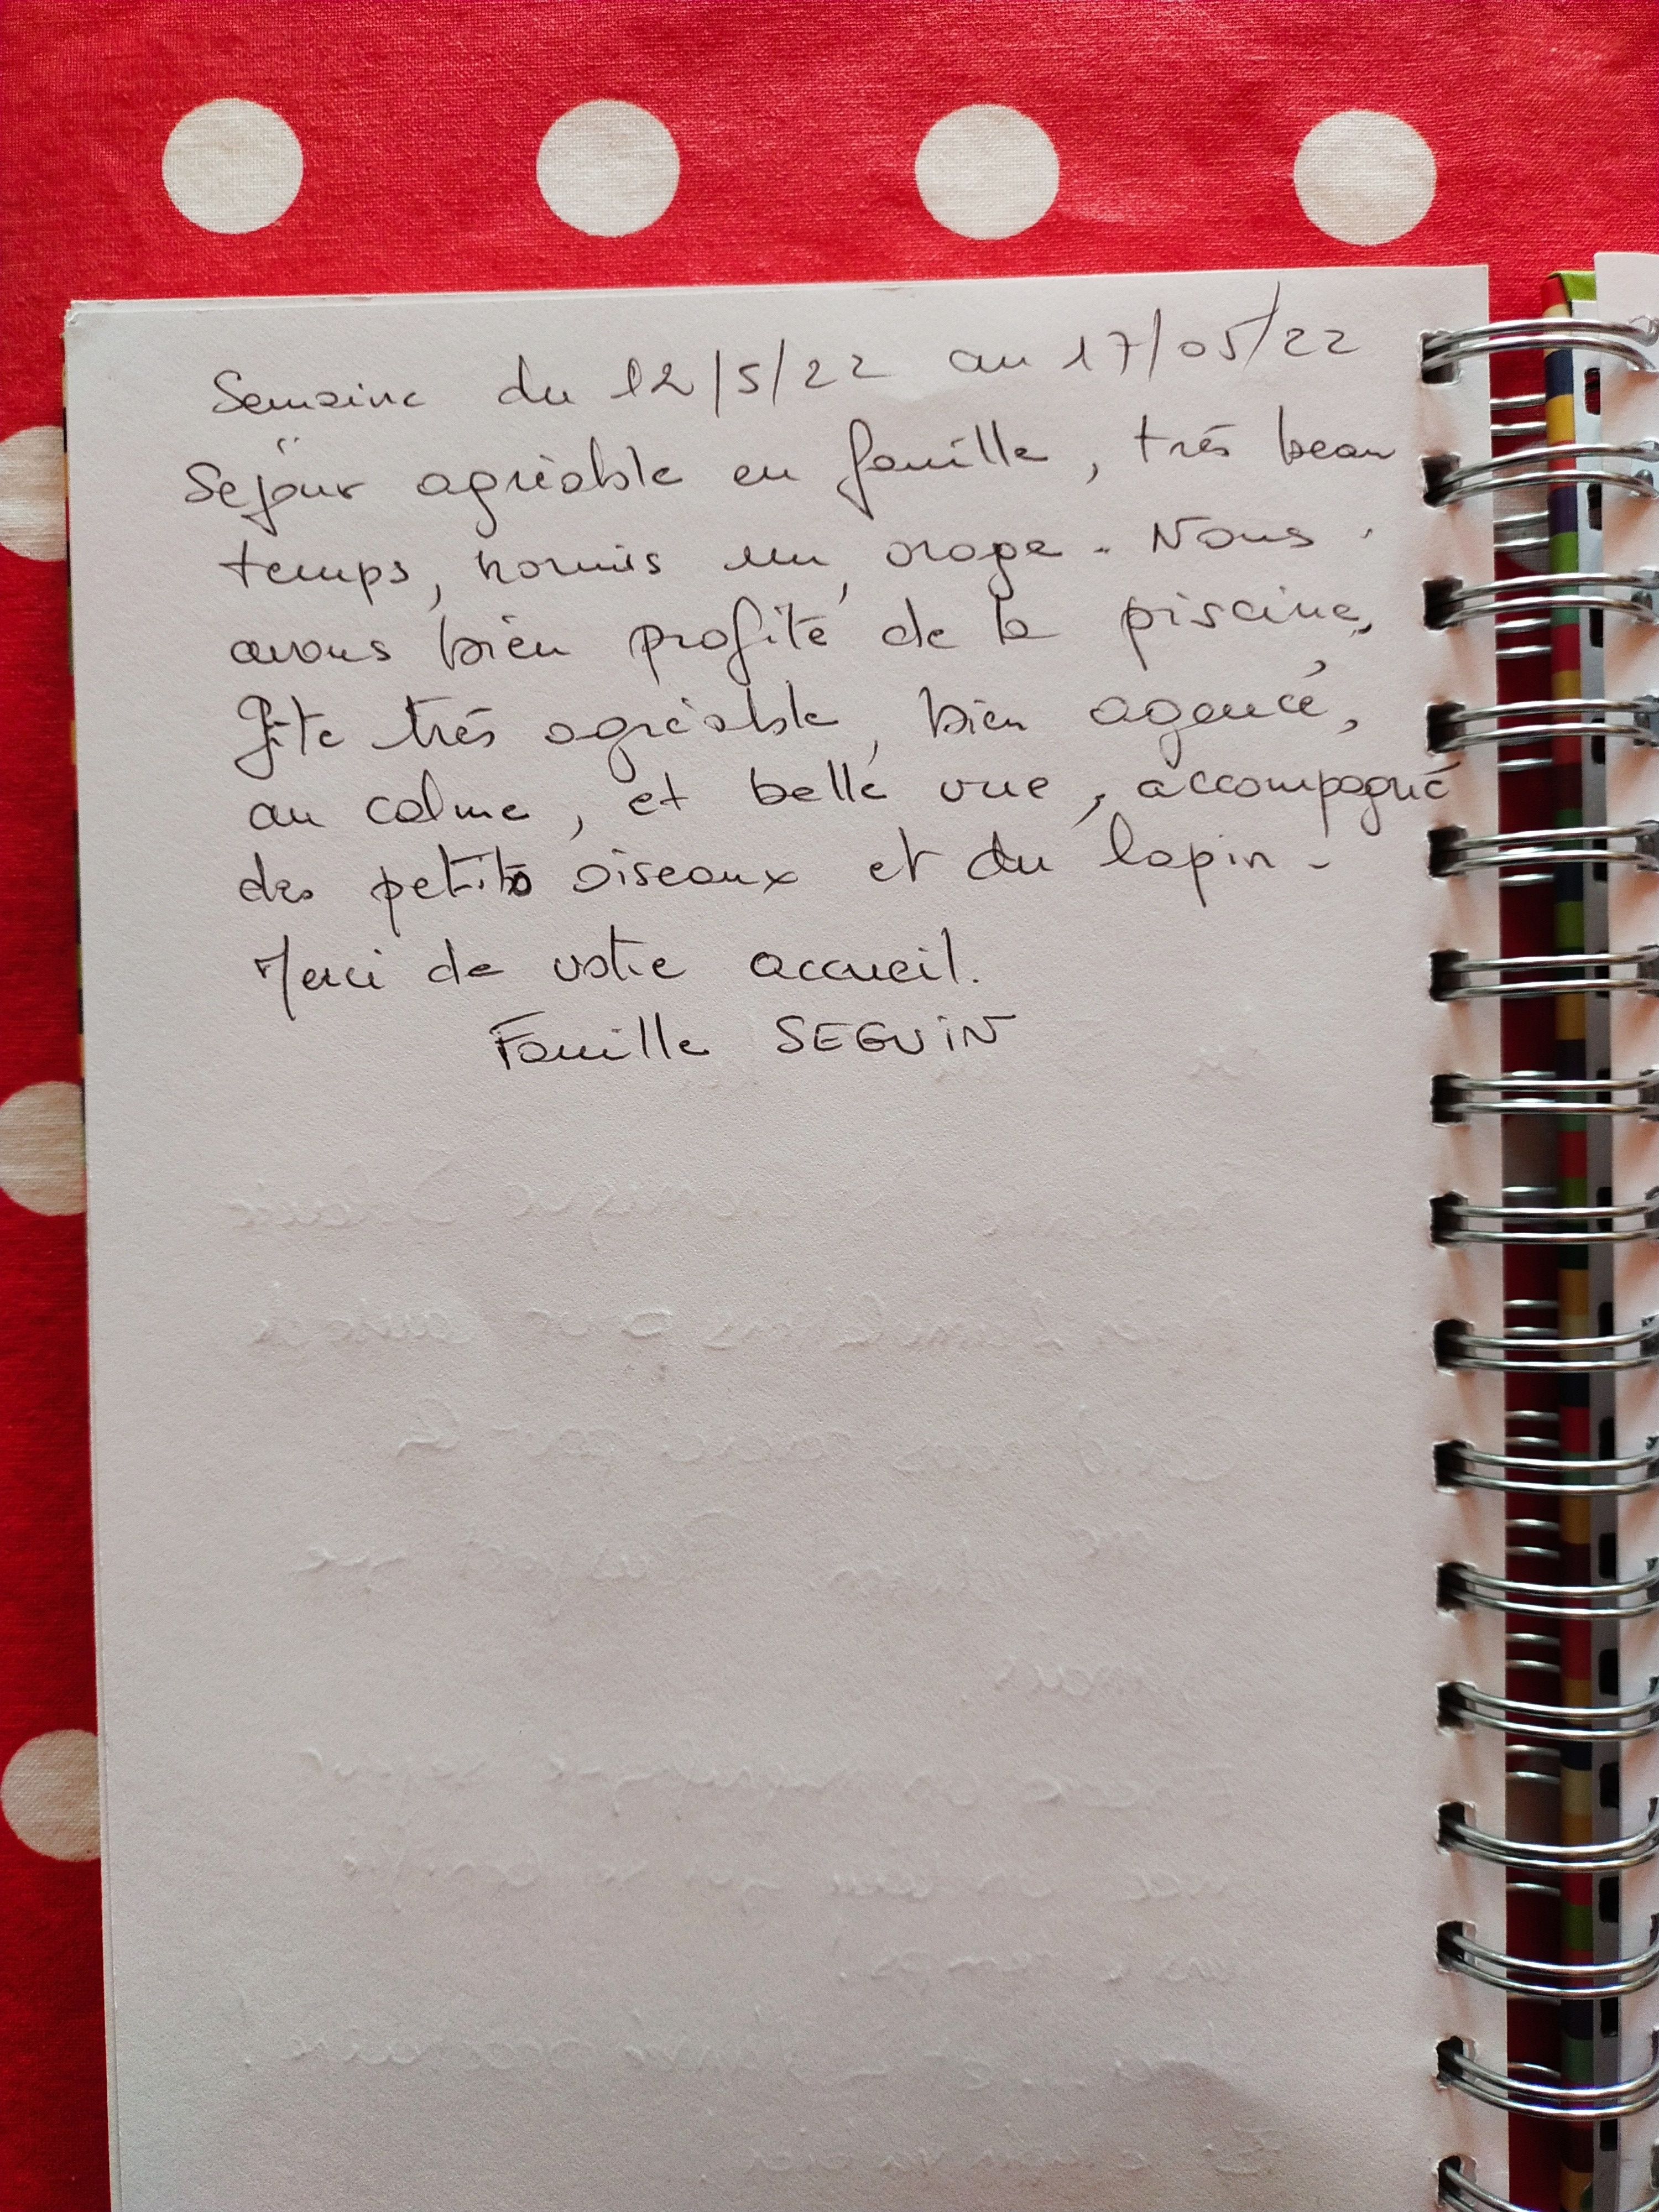 Semaine du 12/5/22 au 17/05/22
Séjour agréable en famille, très beau
temps, hormis un orage. Nous
avons bien profité de la piscine,
Gîte très agréable, bien agencé,
au calme, et belle vue, accompagné
des petits oiseaux et du lapin.
Merci de votre accueil.
Famille SEGUIN